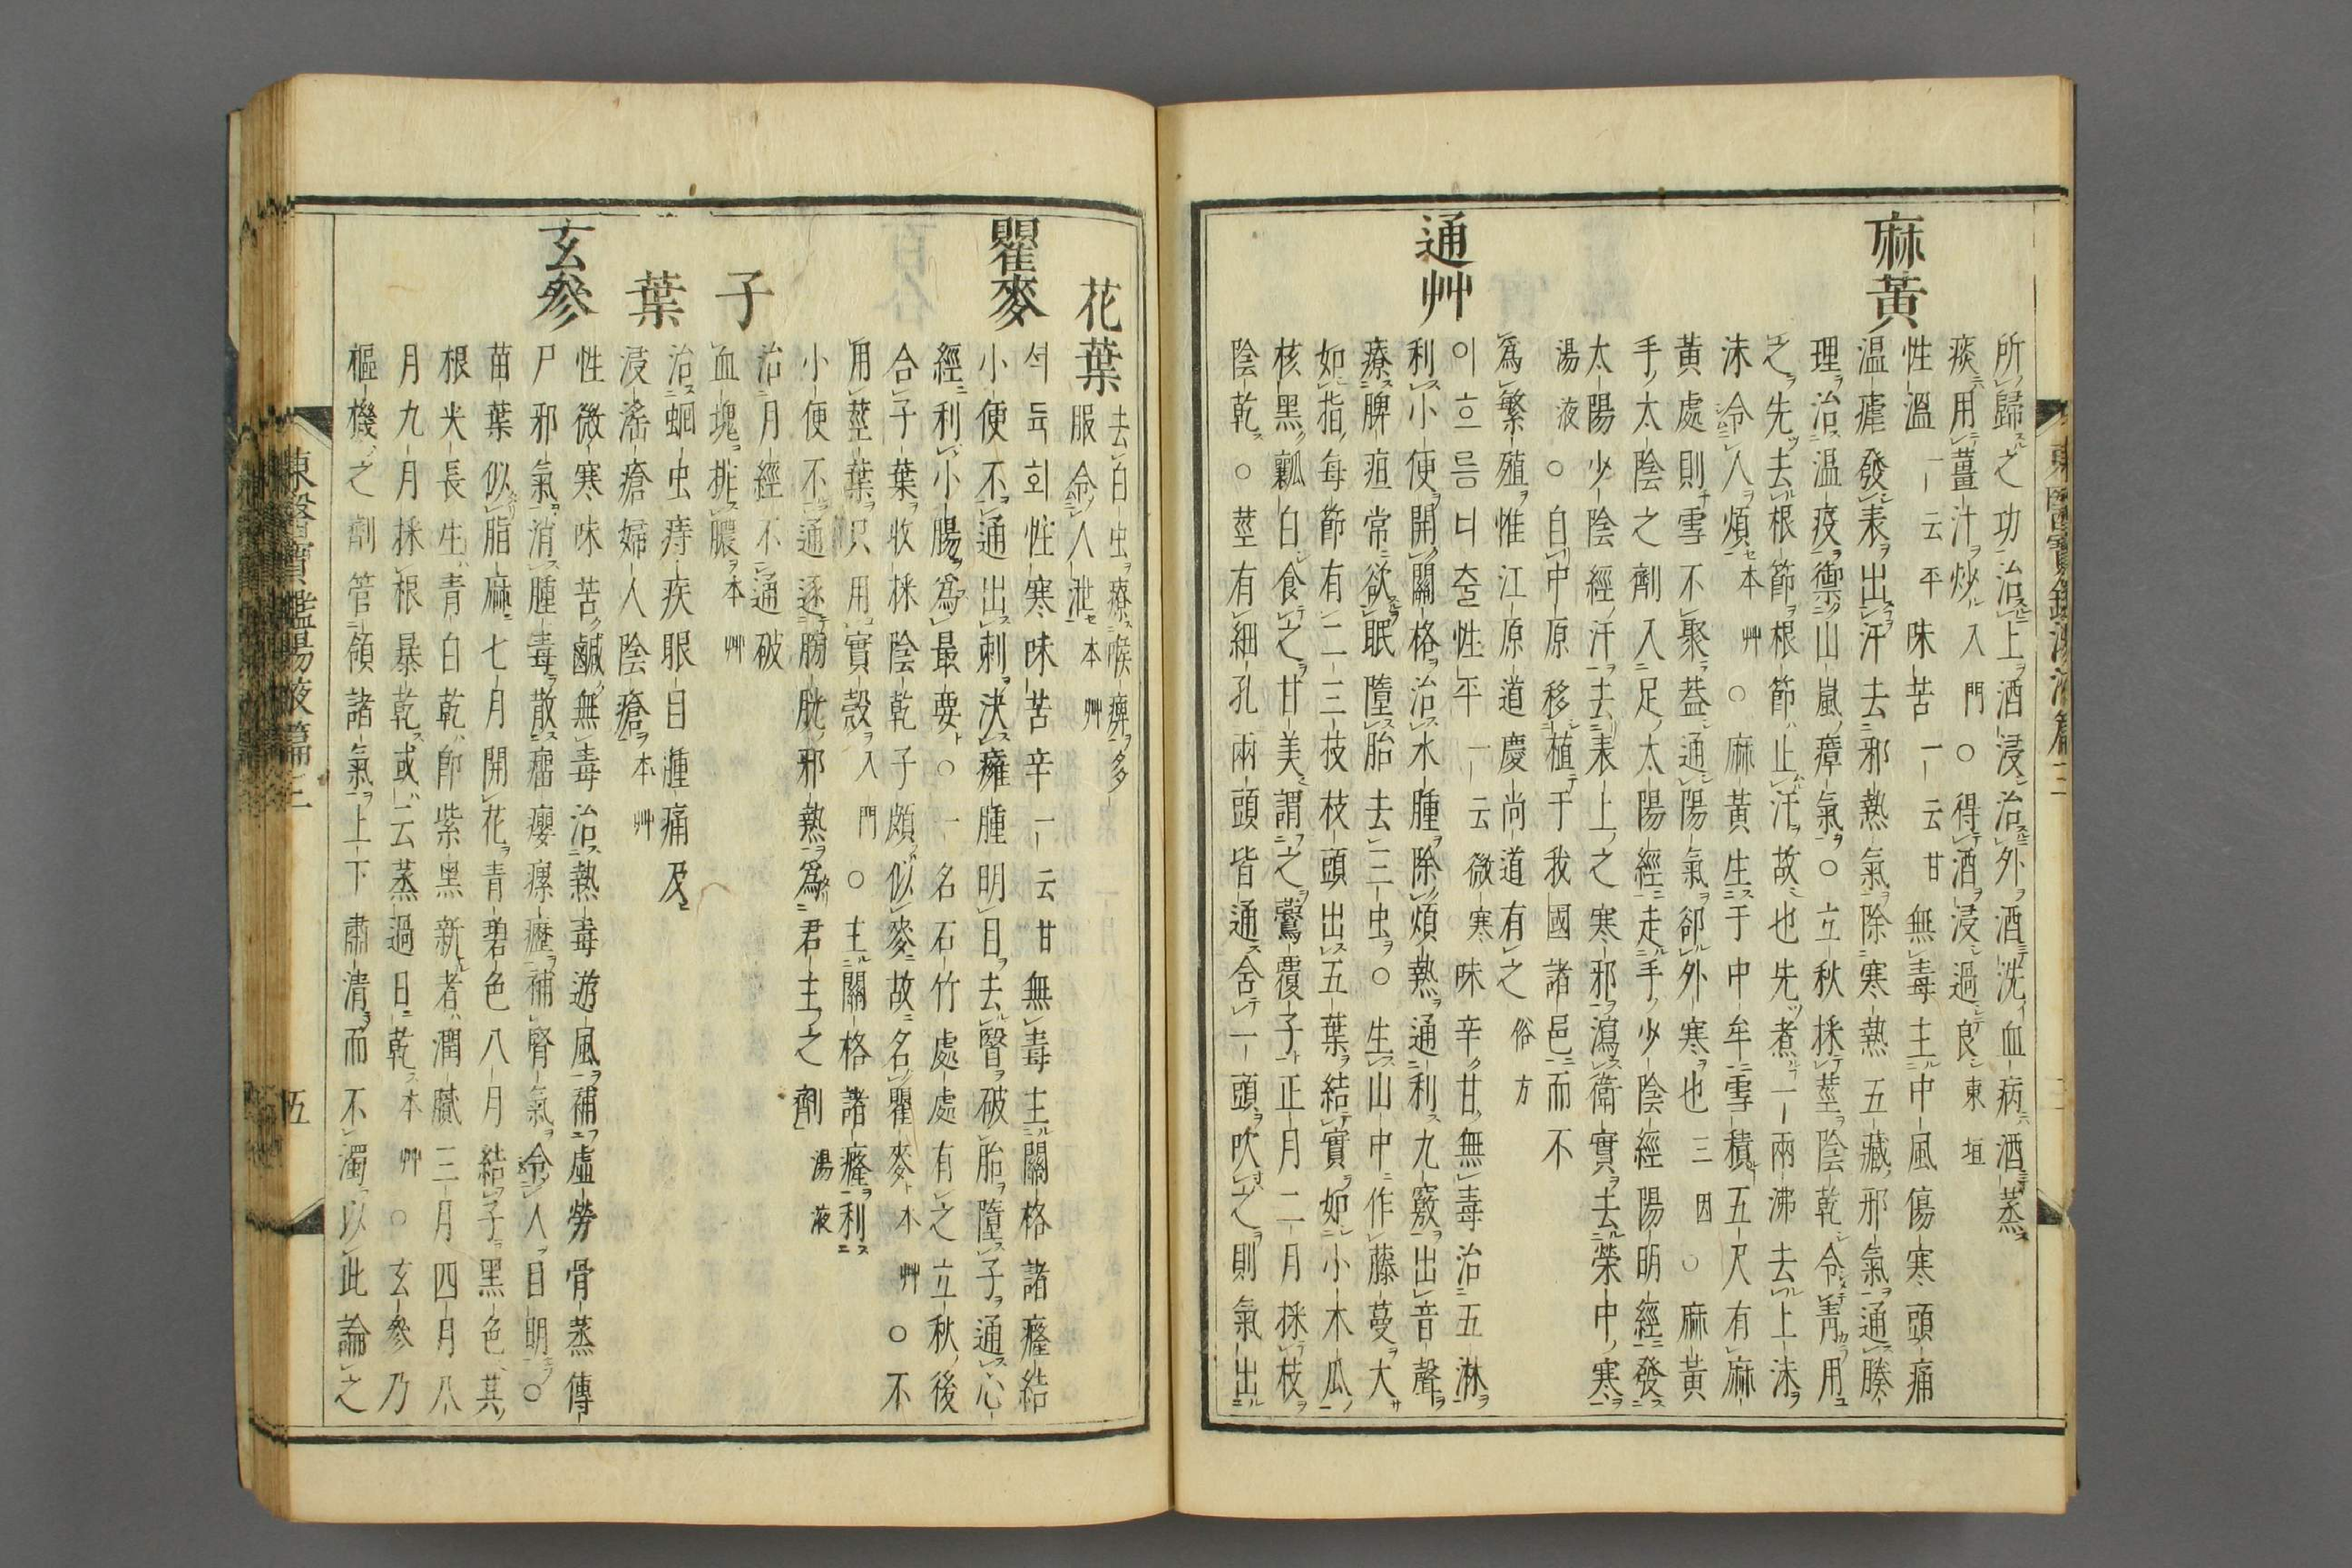 所歸之功治上酒浸治外酒洗血病酒蒸
痰用薑汁炒入門○得酒浸過良東垣
麻黃
性溫一云平味苦一云甘無毒主中風傷寒頭痛
温瘧發表出汗去邪熱氣除寒熱五藏邪氣通腠
理治温疫禦山嵐瘴氣○立秋採莖陰乾令靑用
之先去根節根節止汗故也先煮一兩沸去上沫
沫令人煩本艸○麻黃生于中牟雪積五尺有麻
黃處則雪不聚葢通陽氣卻外寒也三因○麻黃
手太陰之劑入足太陽經走手少陰經陽明經發
太陽少陰經汗去表上之寒邪瀉衛實去榮中寒
湯液○自中原移植于我國諸邑而不
爲繁殖惟江原道慶尚道有之俗方
通艸
이흐름너출性平一云微寒味辛甘無毒治五淋
利小便開關格治水腫除煩熱通利九竅出音聲
療脾疸常欲眠墮胎去三虫○生山中作藤蔓大
如指每節有二三枝枝頭出五葉結實如小木瓜
核黑瓤白食之甘美謂之䳽覆子正月二月採枝
陰乾○莖有細孔兩頭皆通含一頭吹之則氣出
花葉
去白虫療喉痹多
服令人泄本艸
瞿麥
석듁화性寒味苦辛一云甘無毒主關格諸癃結
小便不通出刺決癰腫明目去瞖破胎墮子通心
經利小腸爲最要○一名石竹處處有之立秋後
合子葉收採陰乾子頗似麥故名瞿麥本艸○不
用莖葉只用實殼入門○主關格諸癃利
小便不通逐膀胱邪熱爲君主之劑湯液
子
治月經不通破
血塊排膿本艸
葉
治蛔虫痔疾眼目瘇痛及
浸淫瘡婦人陰瘡本艸
玄參
性微寒味苦鹹無毒治熱毒遊風補虛勞骨蒸傳
尸邪氣消腫毒散瘤癭瘰癧補腎氣令人目明○
苗葉似脂麻七月開花青碧色八月結子黑色其
根尖長生青白乾卽紫黑新者潤膩三月四月八
月九月採根暴乾或云蒸過日乾本艸○玄參乃
樞機之劑管領諸氣上下肅清而不濁以此論之
東醫寶鑑湯液篇三
五